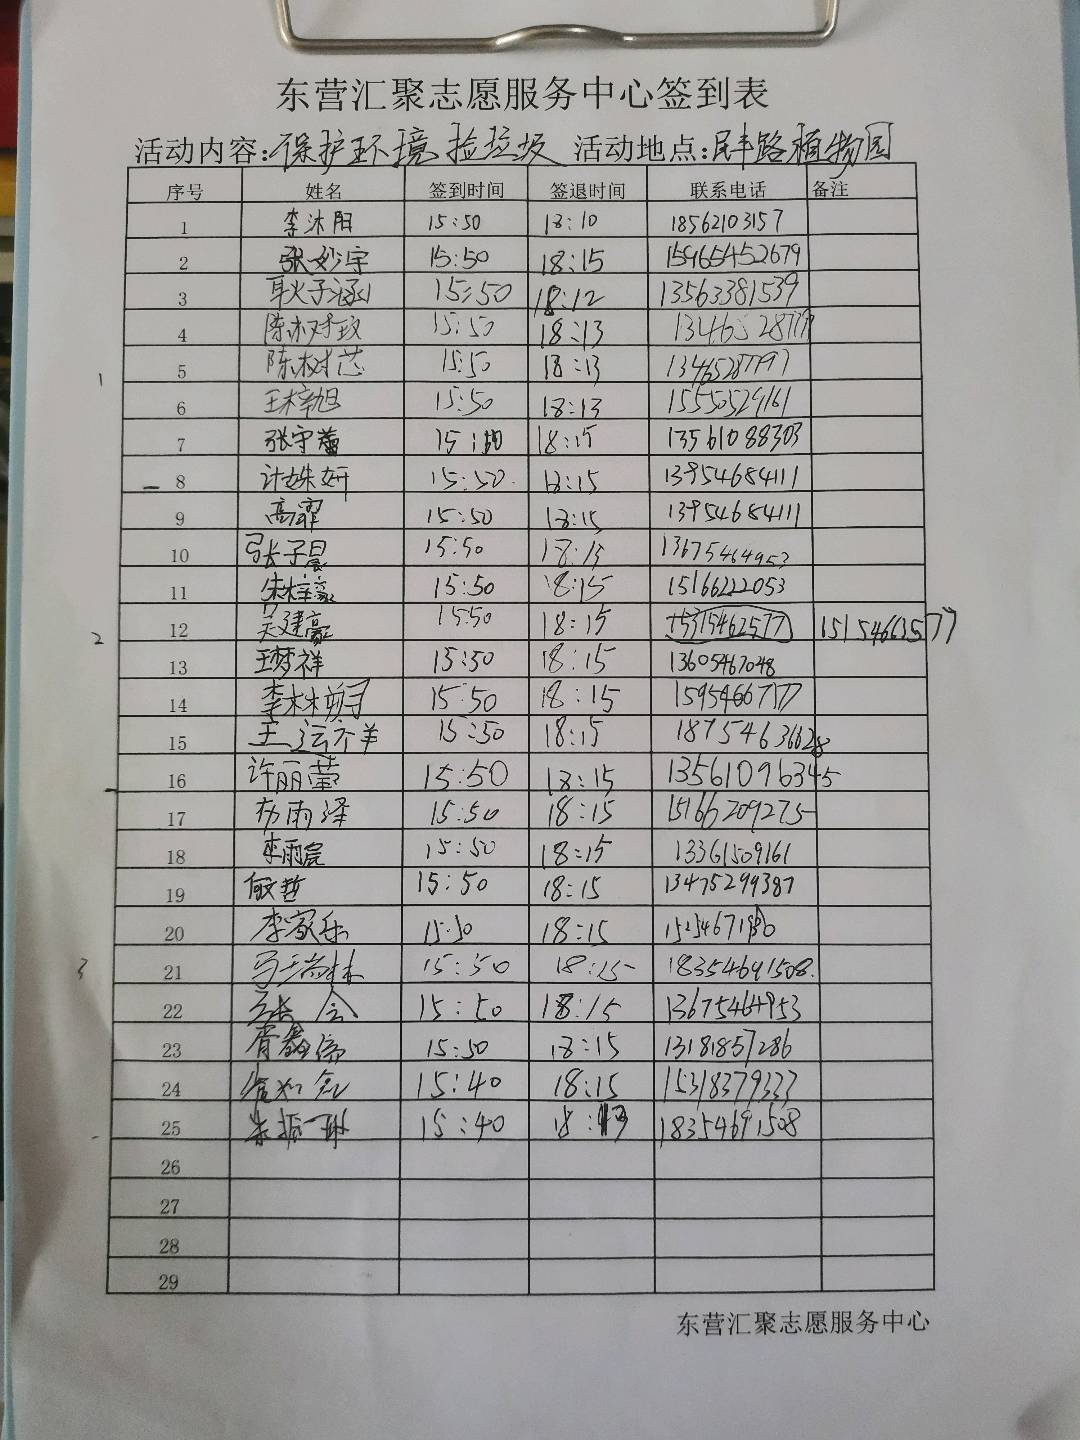 东营汇聚志愿服务中心签到表
活动内容:保护环境捡垃圾 活动地点:民丰路植物园
序号 姓名 签到时间 签退时间 联系电话 备注
1 李沐阳 15:50 18:10 18562103157
2 张妙宇 15:50 18:15 15965452679
3 耿子涵 15:50 18:12 13563381539
4 陈树玟 15:50 18:13
5 陈树芯 15:50 18:13 13465287797
6 王梓旭 15:50 18:13 15550529161
7 张守蕾 15:50 18:15 13561088303
8 计姝妍 15:50 18:15 13954684111
9 高霏 15:50 18:15 13954684111
10 张子晨 15:50 18:13 13675464953
11 朱梓豪 15:50 18:15 15166222053
12 吴建豪 15:50 18:15 15315462577 15154663577
13 王梦祥 15:50 18:15 13605467048
14 李林 15:50 18:15 15954667177
15 王运 15:50 18:15 18754636628
16 许丽莹 15:50 18:15 13561096345
17 雨泽 15:50 18:15 15166209275
18 李雨宸 15:50 18:15 13361509161
19 哲 15:50 18:15 13475299387
20 李家乐 15:50 18:15
21 马瑞林 15:50 18:15 18354691508
22 张会 15:50 18:15 13675464953
23 胥鑫 15:50 18:15 13181857286
24 15:40 18:15 15318379333
25 朱振琳 15:40 18: 18354691508
26
27
28
29
东营汇聚志愿服务中心
1
2
3